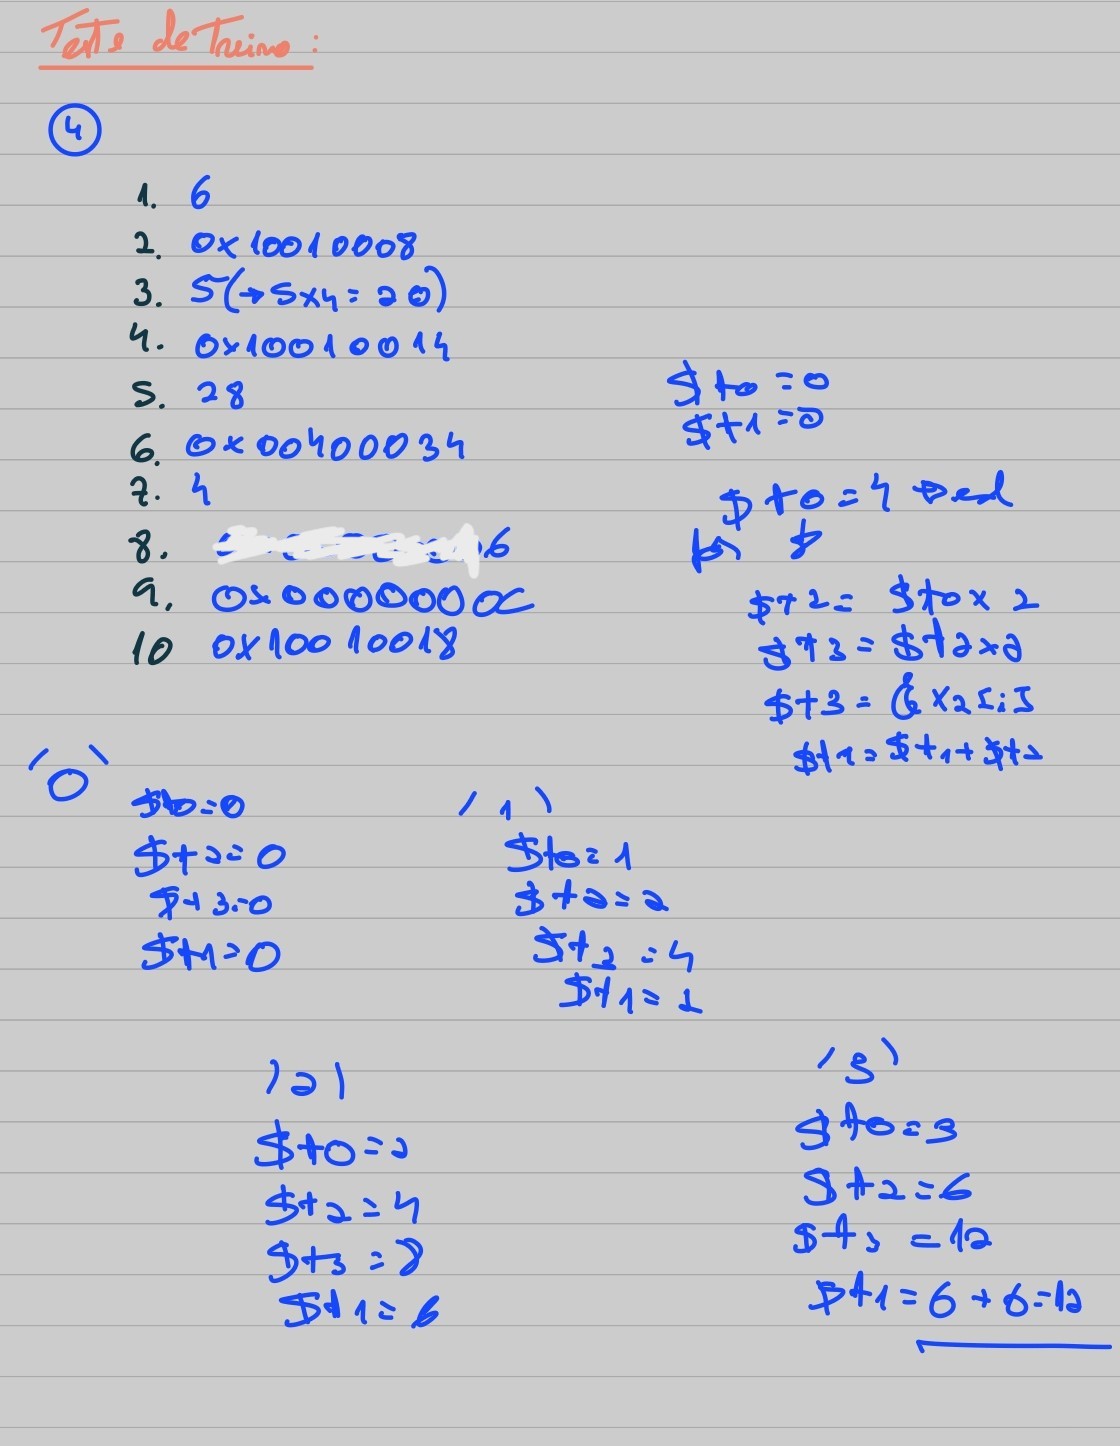 Teste de Treino:
4
1. 6
2. 0x10010008
3. 5(→5x4=20)
4. 0x10010014
5. 28
6. 0x00400034
7. 4
8. 6
9. 0x0000000C
10 0x10010018
$t0=0
$t1=0
$t0=4 → end
$t2= $t0x2
$t3=$t2x2
$t3=
$t1=$t1+$t2
'0'
$t0=0
$t2=0
$t3=0
$t1=0
'1'
$t0=1
$t2=2
$t3=4
$t1=2
'2'
$t0=2
$t2=4
$t3=8
$t1=6
'3'
$t0=3
$t2=6
$t3=12
$t1=6+6=12